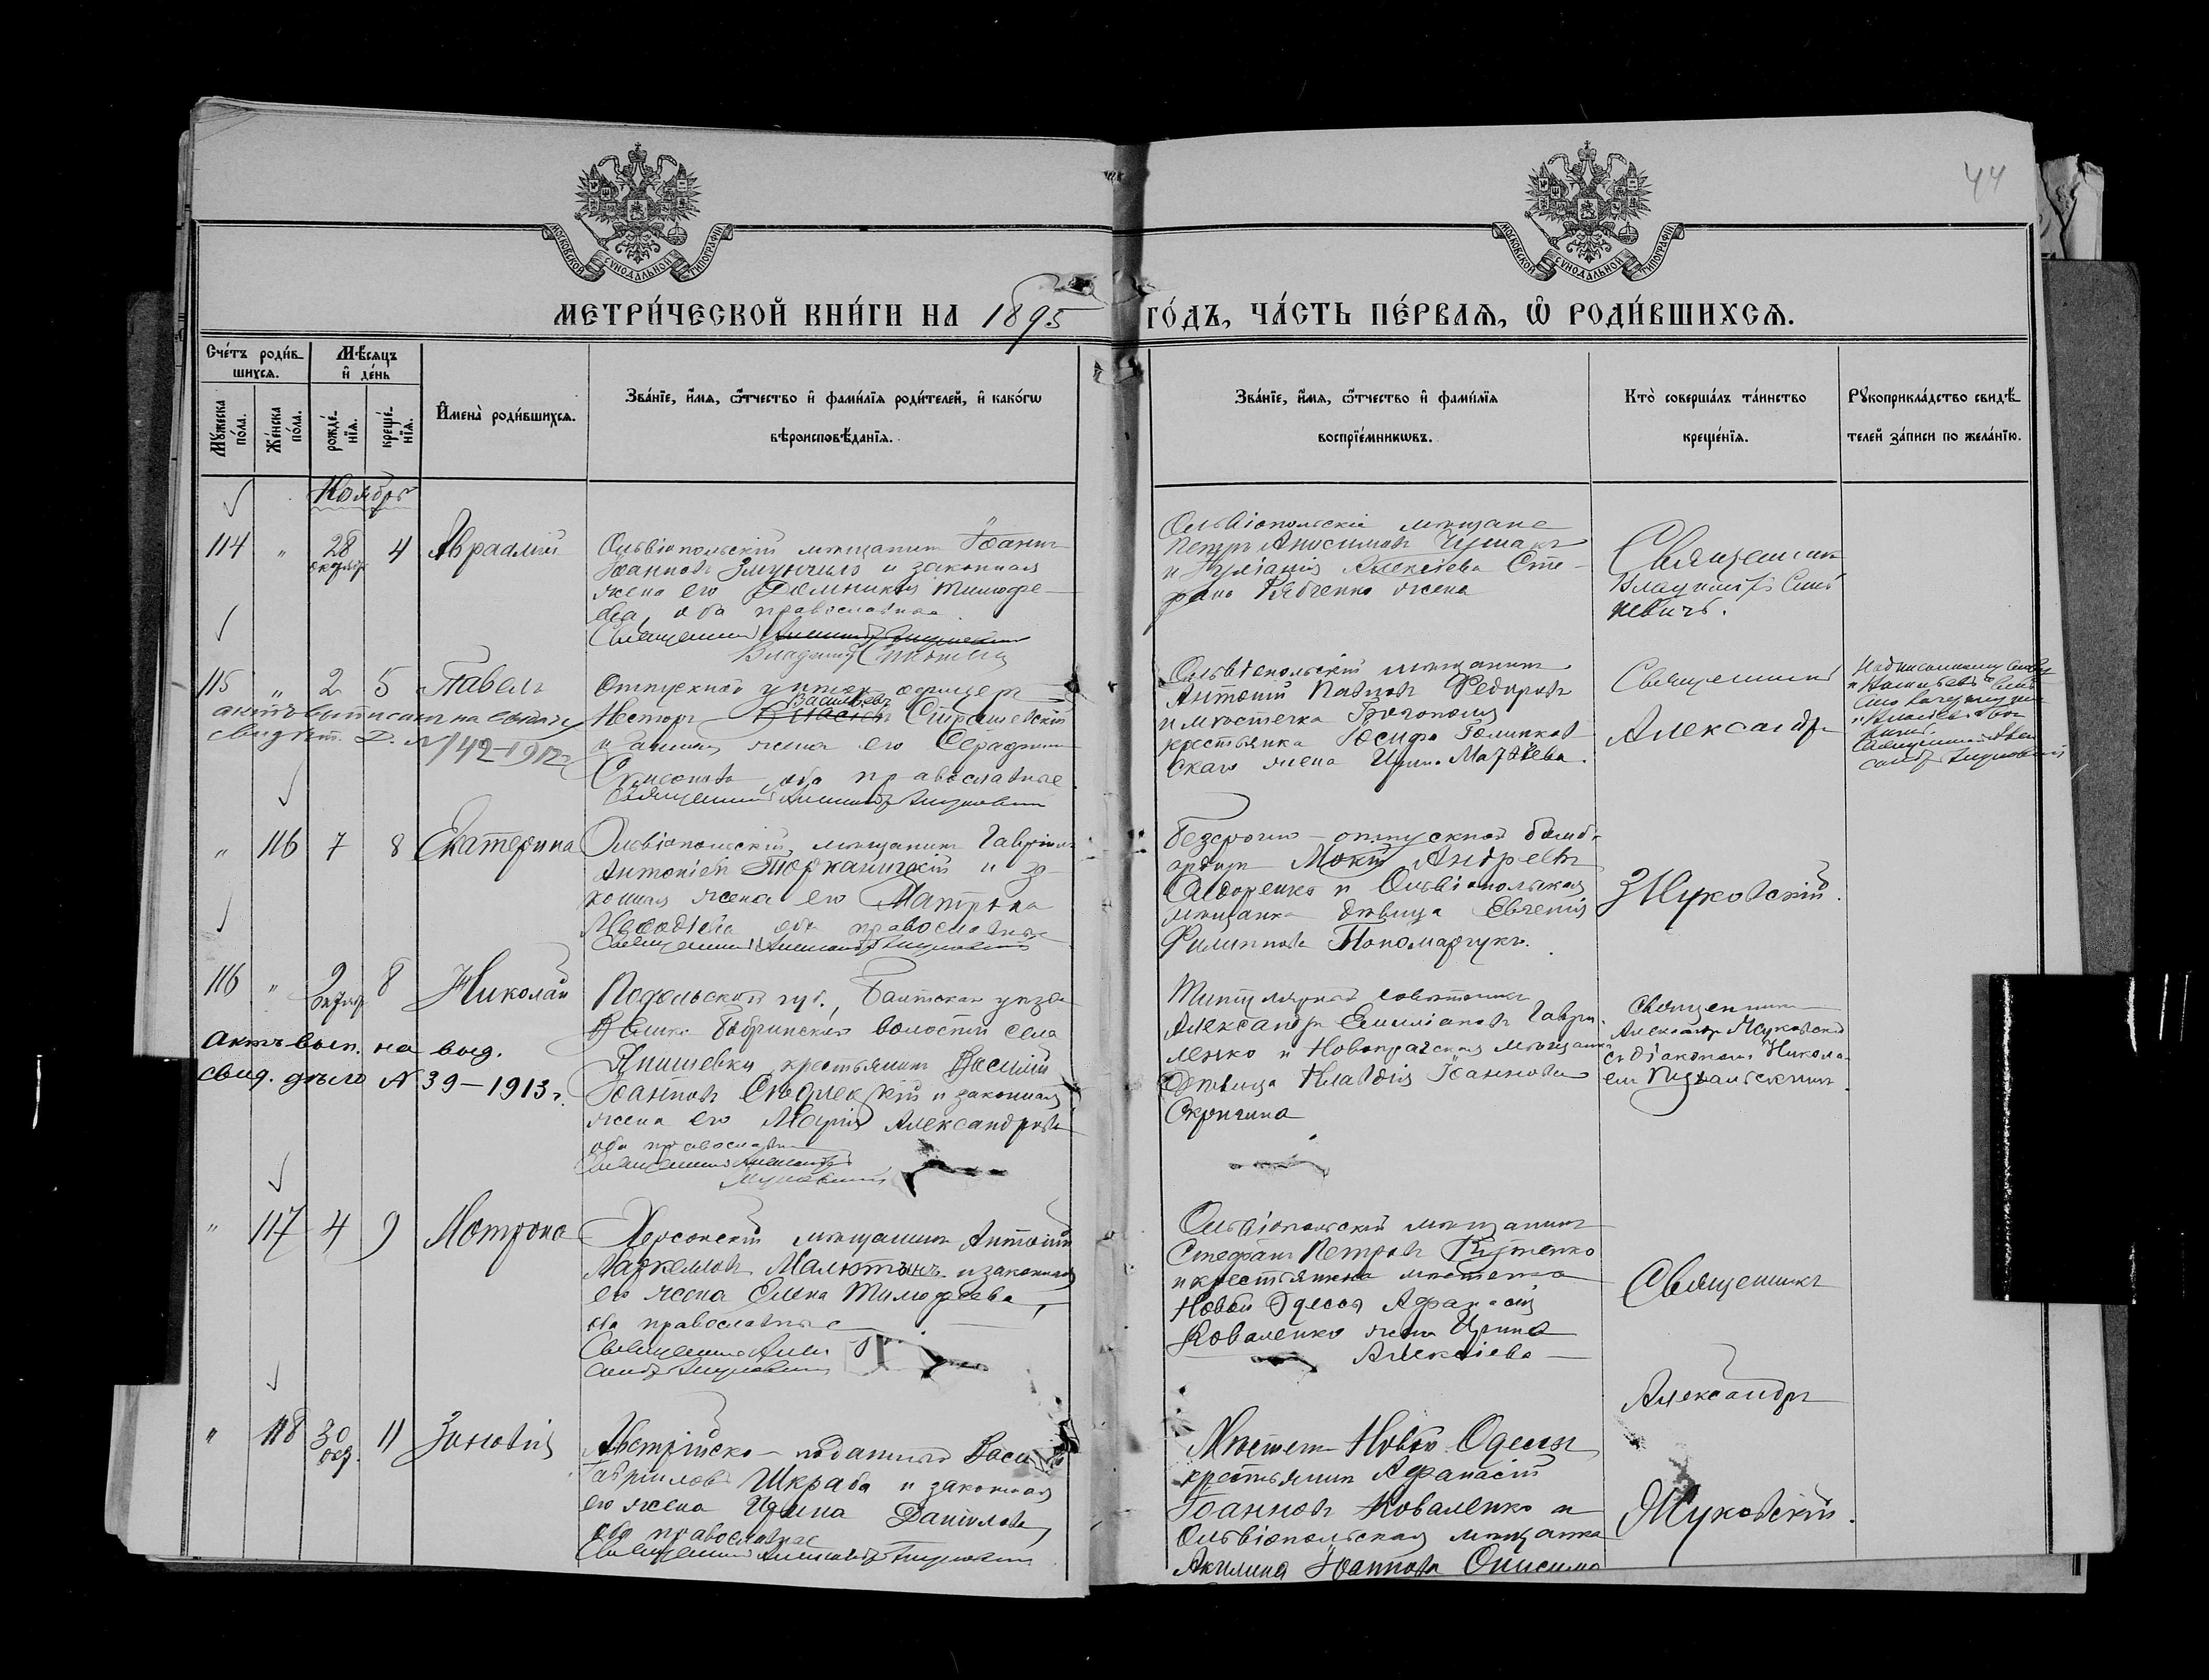 44
МОСКОВСКОЙ СѴНОДАЛЬНОЙ ТИПОГРАФІИ
МОСКОВСКОЙ СѴНОДАЛЬНОЙ ТИПОГРАФІИ
МЕТРИ́ЧЕСКОЙ КНИ́ГИ НА 1895 ГО́ДЪ, ЧА́СТЬ ПЕ́РВАѦ, Ѡ РОДИ́ВШИХСѦ.
Счетъ роди́вшихсѧ.
Мѣ́сѧцъ и҆ де́нь
Мꙋ́жеска по́ла.
Же́нска по́ла.
рожде́нїѧ.
креще́нїѧ.
И҆мена̀ роди́вшихсѧ.
Зва́нїе, и҆́мѧ, ѻ҆́тчество и҆ фами́лїѧ роди́телей, и҆ како́гѡ
вѣроисповѣ́данїѧ.
Зва́нїе, и҆́мѧ, ѻ҆́тчество и҆ фами́лїѧ
воспрїе́мникѡвъ.
Кто̀ соверша́лъ та́инство
креще́нїѧ.
Рꙋкоприкла́дство свидѣ́
телей за́писи по жела́нїю.
Ноябрь
114 " 28 октябр 4 Авраамій
Ольвіопольскій мѣщанинъ Іоаннъ
Іоанновъ Змунчило и законная
жена его Домникія Тимофе-
ева, оба православные
Священникъ
Владиміръ
Ольвіопольскіе мѣщане
Петръ Анисимовъ Чумакъ
и Іуліанія Алексіева Сте-
фана Рябченко жена
Священникъ
Владиміръ
невичъ.
115 " 2 5 Павелъ
актъ выписанъ на выдачу
свидѣт. Д. № 142-1912 г.
Отпускной унтер офицеръ
Васильевъ
Несторъ Власіев Страшевскій
и законная жена его Серафима
Симеонова, оба православные
Священникъ Александръ Жуковскій
Ольвіопольскій мѣщанинъ
Антоній Павловъ Федоровъ
и мѣстечка Богополя
крестьянка Іосифа Голинков
скаго жена Ирина Матѳіева.
Священникъ
Александръ
" 116 7 8 Екатерина
Ольвіопольскій мѣщанинъ Гавріилъ
Антоніевъ Торканискій и за-
конная жена его Матрона
оба православные
Священникъ Александръ Жуковскій
Безсрочно-отпускной бомб-
ардиръ Мокій Андреевъ
Сидоренко и Ольвіопольская
мѣщанка дѣвица Евгенія
Филиппова Пономарчукъ.
Жуковскій.
116 " 9 октябр 8 Николай
Актъ вып. на выд.
свид. дѣло № 39-1913 г.
Подольской губ., Балтскаго уѣзда
волости села
крестьянинъ Василій
Іоанновъ Сѣдлецкій и законная
жена его Марія Александрова
оба православные
Священникъ Александръ
Жуковскій
Титулярный совѣтникъ
Александръ Емиліановъ Гаври-
ленко и Новопражская мѣщанка
дѣвица Клавдія Іоаннова
Скрыгина
Священникъ
Александръ Жуковскій
съ діакономъ Никола-
емъ
" 117 4 9 Мотрона
Херсонскій мѣщанинъ Антоній
Маркелловъ Малютынъ и законная
его жена Елена Тимофеева,
оба православные
Священникъ Алек
сандръ Жуковскій
Ольвіопольскій мѣщанинъ
Стефанъ Петровъ Кутенко
и крестьянина мѣстечка
Новой Одессы Афанасія
Коваленко жена Ирина
Алексіева
Священникъ
Александръ
" 118 30 окт. 11 Зиновія
Австрійско-подданный Васи
Гавріиловъ Шкраба и законная
его жена Ирина Даніилова,
оба православные
Священникъ Александръ Жуковскій
Мѣстеч. Новой Одессы
крестьянинъ Афанасій
Іоанновъ Коваленко и
Ольвіопольская мѣщанка
Акилина Іоаннова Онисимо
Жуковскій.